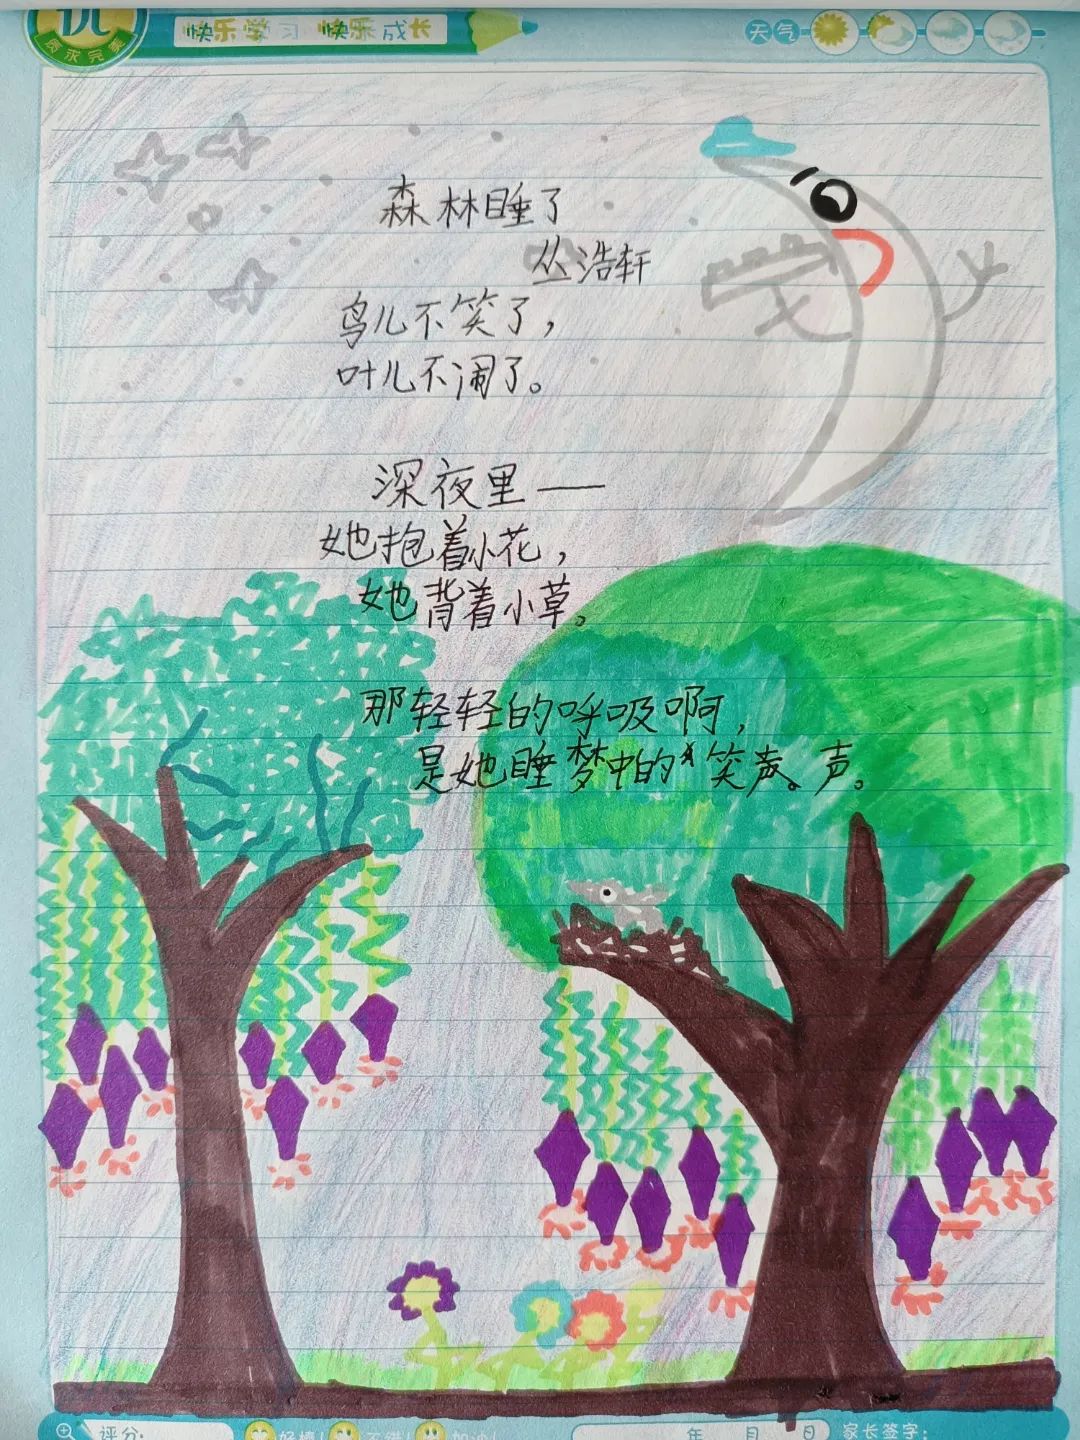 优
质求完美
快乐学习 快乐成长
天气
森林睡了
丛浩轩
鸟儿不笑了，
叶儿不闹了。
深夜里——
她抱着小花，
她背着小草。
那轻轻的呼吸啊，
是她睡梦中的笑声。声。
评分:
好棒! 不错! 加油!
年 月 日
家长签字: